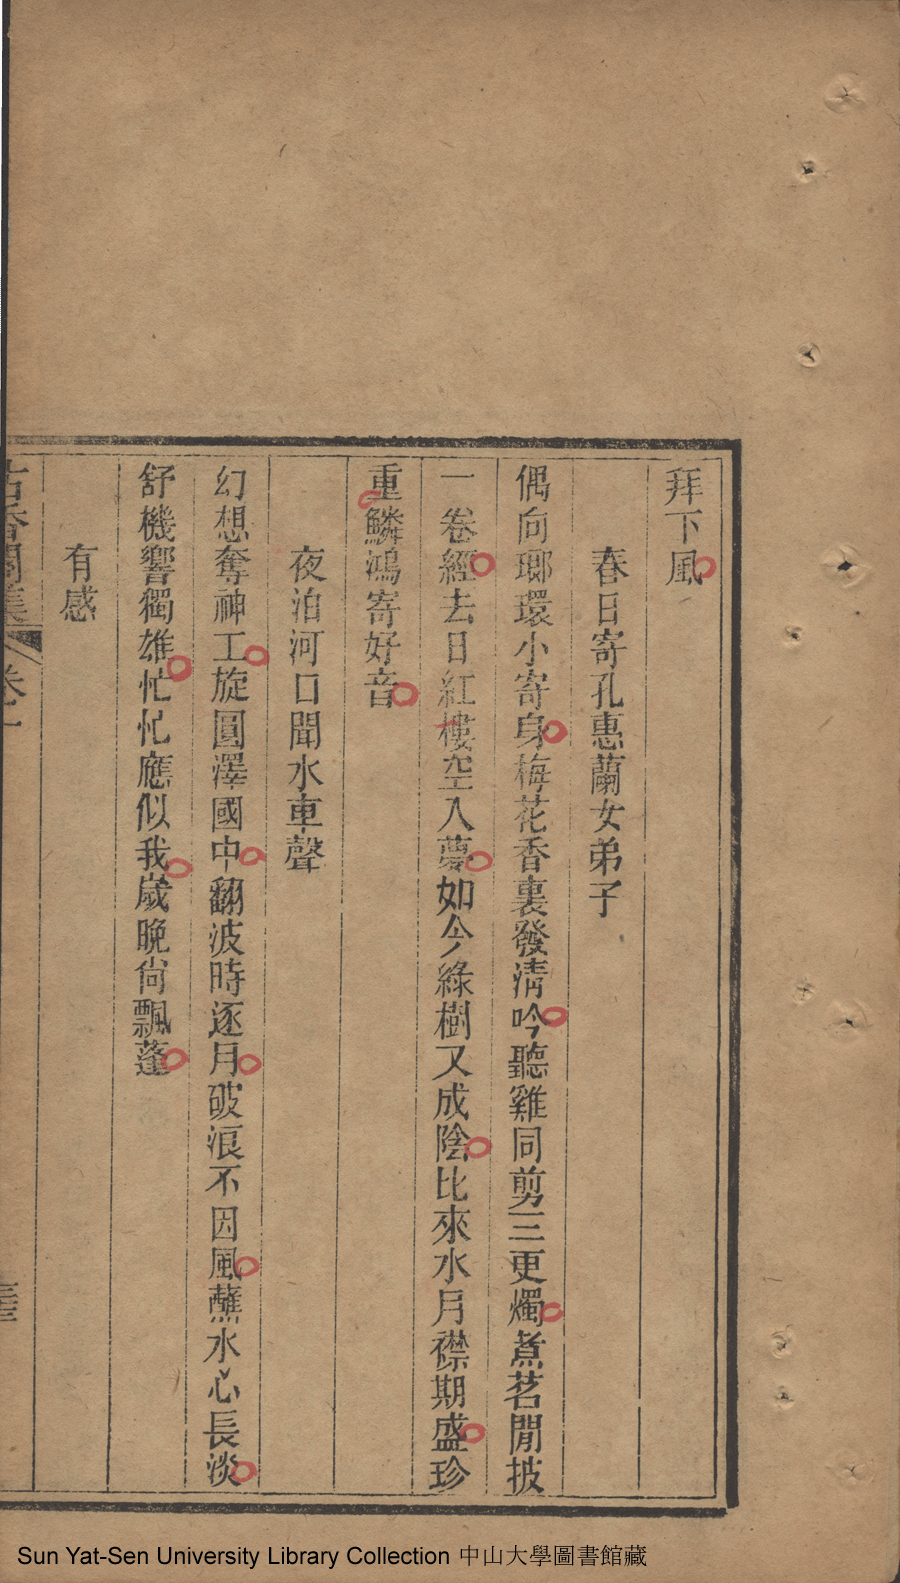 拜下風
春日寄孔惠蘭女弟子
偶向瑯環小寄身梅花香裏發淸吟聽雞同剪三更燭煮茗閒披
一卷經去日紅樓空入夢如今綠樹又成陰比來水月襟期盛珍
重鱗鴻寄好音
夜泊河口聞水車聲
幻想奪神工旋圓澤國中翻波時逐月破浪不因風蘸水心長淡
舒機響獨雄忙忙應似我歲晚尙飄蓬
有感
古香閣集 卷一
Sun Yat-Sen University Library Collection 中山大學圖書館藏